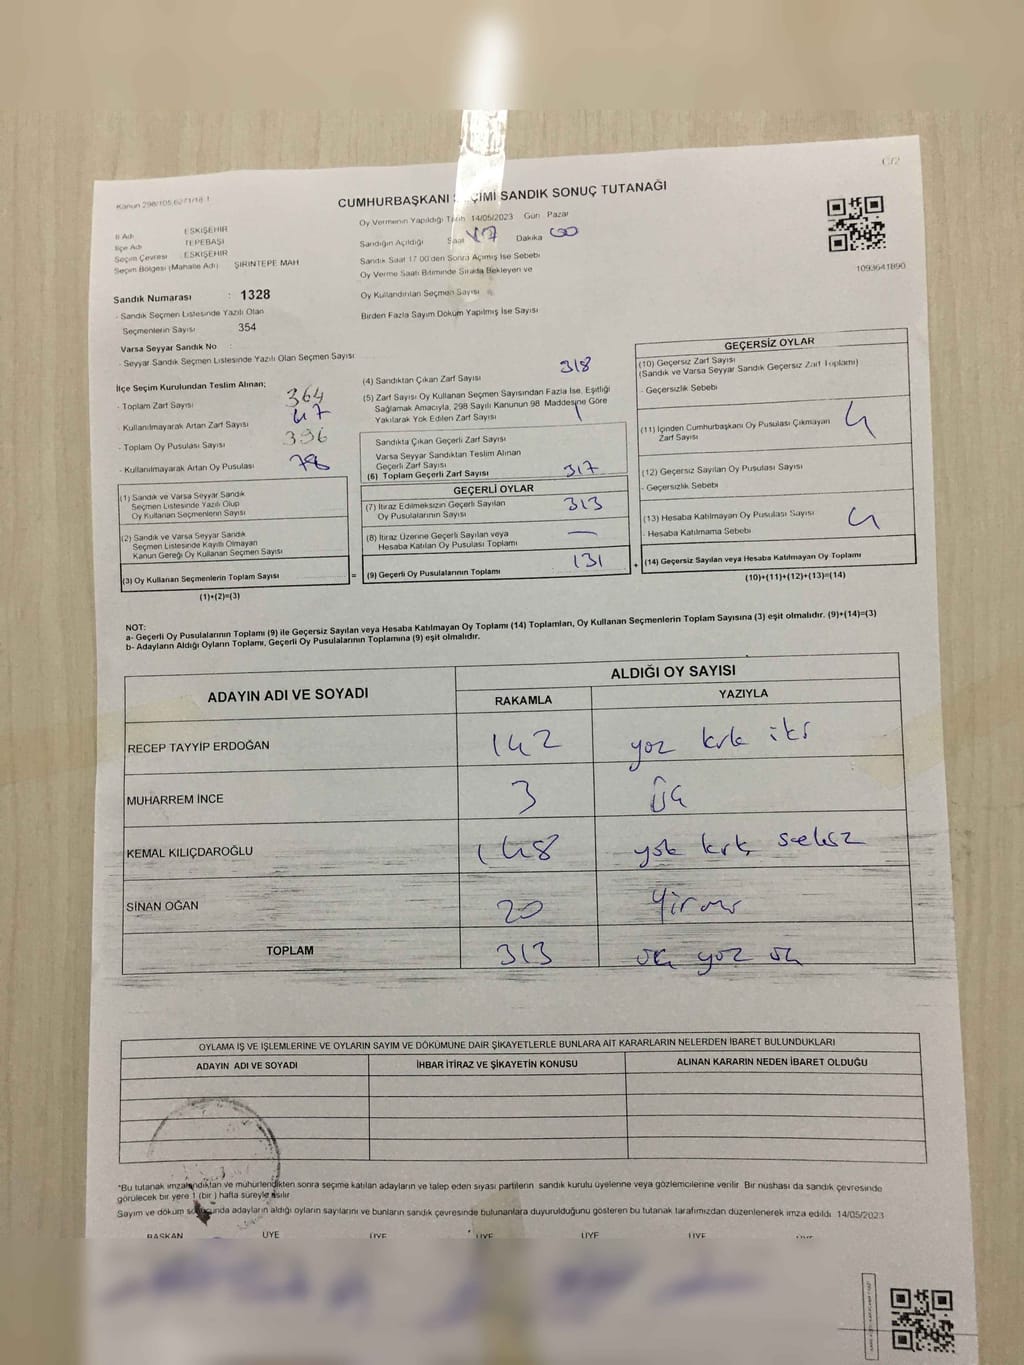 C/2
Kanun 298/105,6271/18 1
CUMHURBAŞKANI SEÇİMİ SANDIK SONUÇ TUTANAĞI
İl Adı ESKİŞEHİR
İlçe Adı TEPEBAŞI
Seçim Çevresi ESKİŞEHİR
Seçim Bölgesi (Mahalle Adı) ŞİRİNTEPE MAH
Sandık Numarası : 1328
- Sandık Seçmen Listesinde Yazılı Olan
Seçmenlerin Sayısı 354
Varsa Seyyar Sandık No :
- Seyyar Sandık Seçmen Listesinde Yazılı Olan Seçmen Sayısı
Oy Vermenin Yapıldığı Tarih 14/05/2023 Gün Pazar
Sandığın Açıldığı Saat 17 Dakika 00
Sandık Saat 17 00'den Sonra Açılmış İse Sebebi
Oy Verme Saati Bitiminde Sırada Bekleyen ve
Oy Kullandırılan Seçmen Sayısı
Birden Fazla Sayım Döküm Yapılmış İse Sayısı
1093641890
İlçe Seçim Kurulundan Teslim Alınan;
- Toplam Zarf Sayısı 364
- Kullanılmayarak Artan Zarf Sayısı 47
- Toplam Oy Pusulası Sayısı 396
- Kullanılmayarak Artan Oy Pusulası 78
(1) Sandık ve Varsa Seyyar Sandık
Seçmen Listesinde Yazılı Olup
Oy Kullanan Seçmenlerin Sayısı
(2) Sandık ve Varsa Seyyar Sandık
Seçmen Listesinde Kayıtlı Olmayan
Kanun Gereği Oy Kullanan Seçmen Sayısı
(3) Oy Kullanan Seçmenlerin Toplam Sayısı
(1)+(2)=(3)
=
(4) Sandıktan Çıkan Zarf Sayısı 318
(5) Zarf Sayısı Oy Kullanan Seçmen Sayısından Fazla İse, Eşitliği
Sağlamak Amacıyla, 298 Sayılı Kanunun 98. Maddesine Göre
Yakılarak Yok Edilen Zarf Sayısı 1
Sandıkta Çıkan Geçerli Zarf Sayısı
Varsa Seyyar Sandıktan Teslim Alınan
Geçerli Zarf Sayısı
(6) Toplam Geçerli Zarf Sayısı 317
GEÇERLİ OYLAR
(7) İtiraz Edilmeksizin Geçerli Sayılan
Oy Pusulalarının Sayısı 313
(8) İtiraz Üzerine Geçerli Sayılan veya
Hesaba Katılan Oy Pusulası Toplamı —
(9) Geçerli Oy Pusulalarının Toplamı 131
+
GEÇERSİZ OYLAR
(10) Geçersiz Zarf Sayısı
(Sandık ve Varsa Seyyar Sandık Geçersiz Zarf Toplamı)
- Geçersizlik Sebebi
(11) İçinden Cumhurbaşkanı Oy Pusulası Çıkmayan
Zarf Sayısı 4
(12) Geçersiz Sayılan Oy Pusulası Sayısı
- Geçersizlik Sebebi
(13) Hesaba Katılmayan Oy Pusulası Sayısı 4
- Hesaba Katılmama Sebebi
(14) Geçersiz Sayılan veya Hesaba Katılmayan Oy Toplamı
(10)+(11)+(12)+(13)=(14)
NOT:
a- Geçerli Oy Pusulalarının Toplamı (9) ile Geçersiz Sayılan veya Hesaba Katılmayan Oy Toplamı (14) Toplamları, Oy Kullanan Seçmenlerin Toplam Sayısına (3) eşit olmalıdır. (9)+(14)=(3)
b- Adayların Aldığı Oyların Toplamı, Geçerli Oy Pusulalarının Toplamına (9) eşit olmalıdır.
ADAYIN ADI VE SOYADI ALDIĞI OY SAYISI
RAKAMLA YAZIYLA
RECEP TAYYİP ERDOĞAN 142 yüz kırk iki
MUHARREM İNCE 3 üç
KEMAL KILIÇDAROĞLU 148 yüz kırk sekiz
SİNAN OĞAN 20 Yirmi
TOPLAM 313 üç yüz üç
OYLAMA İŞ VE İŞLEMLERİNE VE OYLARIN SAYIM VE DÖKÜMÜNE DAİR ŞİKAYETLERLE BUNLARA AİT KARARLARIN NELERDEN İBARET BULUNDUKLARI
ADAYIN ADI VE SOYADI İHBAR İTİRAZ VE ŞİKAYETİN KONUSU ALINAN KARARIN NEDEN İBARET OLDUĞU
*Bu tutanak imzalandıktan ve mühürlendikten sonra seçime katılan adayların ve talep eden siyasi partilerin sandık kurulu üyelerine veya gözlemcilerine verilir. Bir nüshası da sandık çevresinde
görülecek bir yere 1 (bir) hafta süreyle asılır
Sayım ve döküm sonucunda adayların aldığı oyların sayılarını ve bunların sandık çevresinde bulunanlara duyurulduğunu gösteren bu tutanak tarafımızdan düzenlenerek imza edildi. 14/05/2023
BAŞKAN ÜYE ÜYE ÜYE ÜYE ÜYE